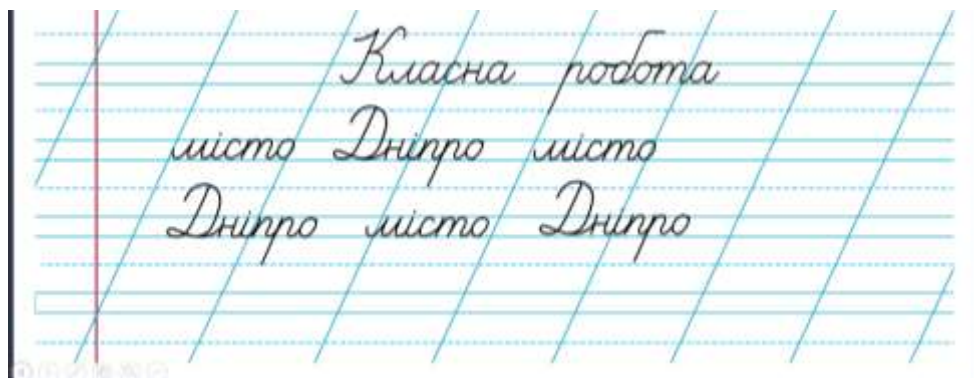 Класна робота
місто Дніпро місто
Дніпро місто Дніпро